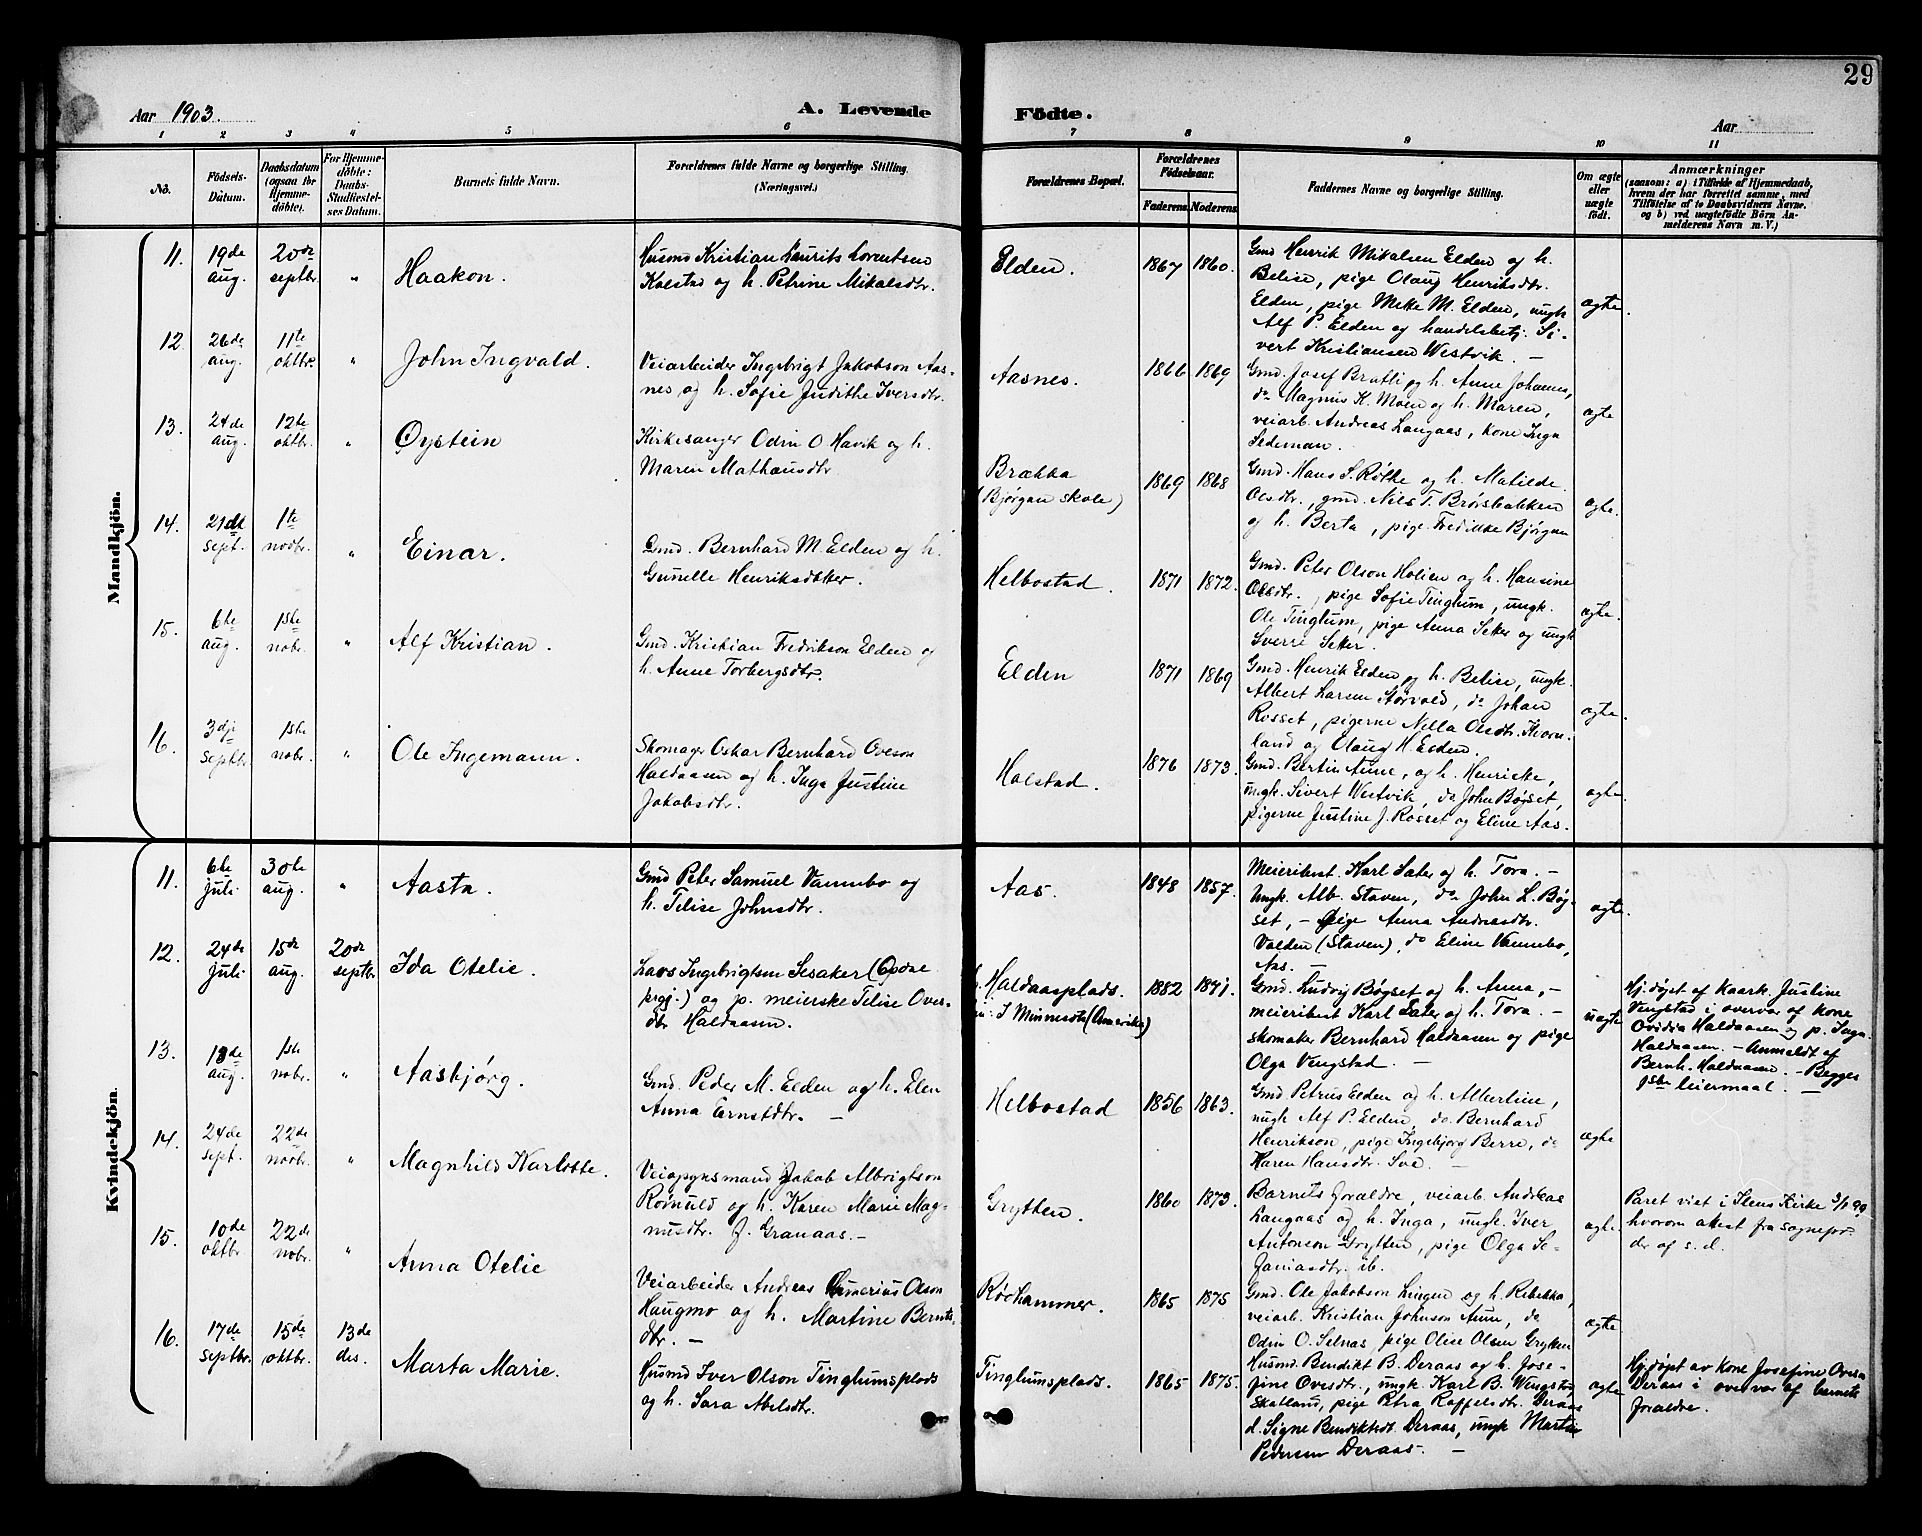 29
Aar 1903.
A. Levende Födte.
Aar
1 2 3 4 5 6 7 8 9 10 11
No.
Födsels-
Datum.
Daabsdatum
(ogsaa for
Hjemme-
döbte).
For Hjemme-
döbte:
Daabs-
Stadfæstel-
ses Datum.
Barnets fulde Navn.
Forældrenes fulde Navne og borgerlige Stilling.
(Næringsvei.)
Forældrenes Bopæl.
Forældrenes
Födselsaar.
Faderens. Moderens.
Faddernes Navne og borgerlige Stilling.
Om ægte
eller
uægte
födt.
Anmærkninger
(saasom: a) i Tilfælde af Hjemmedaab,
hvem der har forrettet samme, med
Tilföielse af to Daabsvidners Navne.
og b) ved uægtefödte Börn An-
melderens Navn m. V.)
Mandkjön.
11.
19de
aug.
20de
septbr.
"
Haakon.
Husmd Kristian Laurits Lorentsen
Kolstad og h. Petrine Mikalsdtr.
Elden.
1867 1860.
Gmd Henrik Mikalsen Elden og h.
Belise, pige Olaug Henriksdtr.
Elden, pige Mekke M. Elden, ungk.
Alf P. Elden og handelsbetj. Si-
vert Kristiansen Westvik. —
ægte.
12.
26de
aug.
11te
oktbr.
"
John Ingvald.
Veiarbeider Ingebrigt Jakobson Aas-
nes og h. Sofie Judithe Iversdtr.
Aasnes.
1866 1869
Gmd. Josef Bratli og h. Anne Johannes,
do Magnus K. Moen og h. Maren,
veiarb. Andreas Langaas, kone Inga
Sedeman.
ægte
13.
24de
aug.
12te
oktbr.
"
Øystein
Kirkesanger Odin O Havik og h.
Maren Mathausdtr.
Brækka
(Bjørgan skole)
1869 1868
Gmd. Hans S. Røtke og h. Matilde
Olsdtr., gmd. Nils T. Brøsbakken
og h. Berta, pige Fredikke Bjørgan
ægte.
14.
21de
sept.
1te
novbr.
"
Einar.
Gmd. Bernhard M. Elden og h.
Gunelle Henriksdatter.
Helbostad.
1871 1872.
Gmd. Peter Olson Holien og h. Hansine
Olsdtr., pige Sofie Tinglum, ungk.
Ole Tinglum, pige Anna Seter og ungk
Sverre Seter.
ægte.
15.
6te
aug.
1ste
nobr.
"
Alf Kristian.
Gmd. Kristian Fredrikson Elden og
h. Anne Torbergsdtr.
Elden
1871 1869
Gmd. Henrik Elden og h. Belise, ungk.
Albert Larsen Storvold, do Johan
Rosset, pigerne Nilla Olsdtr. Kvorn-
land og Olaug H. Elden.
ægte.
16.
3dje
septbr.
1ste
nobr.
"
Ole Ingemann.
Skomager Oskar Bernhard Oveson
Haldaasen og h. Inga Justine
Jakobsdtr.
Holstad.
1876 1873.
Gmd. Bertin Aune, og h. Henrikke,
ungk. Sivert Westvik, do John Bøgset,
pigerne Justine J. Rosset og Eline Aas.
ægte.
Kvindekjön.
11.
6te
juli
30te
aug.
"
Aasta.
Gmd Peter Samuel Vannebo og
h. Telise Johnsdtr.
Aas.
1848 1857.
Meieribest. Karl Sæter og h. Tora. —
Ungk. Alb. Staven, do John L. Bøg-
set, – pige Anna Andreasdtr.
Valden (Staven), do Eline Vannebo,
Aas. —
ægte.
12.
24de
juli
15de
aug.
20de
septbr.
Ida Otelie.
Lars Ingebrigtsen Sesaker (Opdal
prgj.) og p. meierske Telise Oves-
dtr Haldaasen.
Haldaasplads.
I Minnesota (Amerika)
1882 1871.
Gmd. Ludvig Bøgset og h. Anna, –
meieribest Karl Sæter og h. Tora. –
skomaker Bernhard Haldaasen og pige
Olga Vengstad. —
uægte
Hj.døpt af Kaark. Justine
Vengstad i overvær af kone
Ovidia Haldaasen og p. Inga
Haldaasen. – Anmeldt af
Bernh. Haldaasen. – Begges
1ste leiermaal. —
13.
13de
aug.
1ste
nobr.
"
Aasbjørg.
Gmd. Peder M. Elden og h. Elen
Anna Ernstdtr. —
Helbostad
1856 1863.
Gmd Petrus Elden og h. Albertine,
ungk Alf P. Elden, do. Bernhard
Henrikson, pige Ingebjorg Berre, do
Karen Hansdtr. Sve. —
ægte
14.
24de
sept.
22de
novbr.
"
Magnhild Karlotte.
Veiopsynsmand Jakob Albrigtson
Rømuld og h. Karen Marie Mag-
nusdtr. f. Granaas. –
Grytten.
1860 1873.
Barnets forældre, veiarb. Andreas
Langaas og h. Inga, ungk. Iver
Antonson Grytten, pige Olga Se-
faniasdtr. ib.
ægte
Paret viet i Ilens Kirke 3/1 99
hvorom attest fra sognepr.
der af s. d.
15.
10de
oktbr.
22de
nobr.
"
Anna Otelie
Veiarbeider Andreas Kumerius Olson
Haugmo og h. Martine Bernts-
dtr. —
Rødhammer.
1865 1875
Gmd. Ole Jakobson Lingen og h. Rebekka,
veiarb. Kristian Johnson Aune, do
Odin O. Selnæs, pige Olise Olsen Grytten
ægte
16.
17de
septbr.
15de
oktbr.
13de
des.
Marta Marie.
Husmd Iver Olson Tinglumsplads
og h. Sara Abelsdtr.
Tinglumsplads.
1865 1875.
Husmd. Bendikt B. Deraas og h. Jose-
fine Ovesdtr., ungk. Karl B. Wengstad
Skatland, pige Petra Roffelsdtr. Deraas
d. Signe Bendiktsdt. Deraas, ungk Martin
Pedersen Deraas. —
ægte
Hj.døpt av Kone Josefine Ovesd
Deraas i overvær af barnets
forældre.